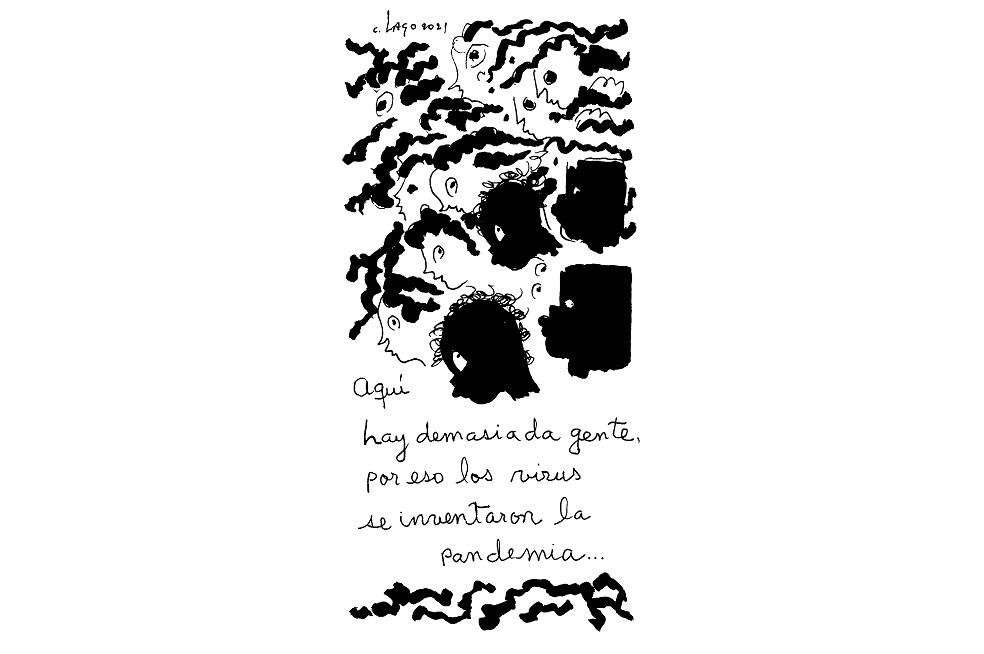 c. Lago 2021
Aquí
hay demasiada gente,
por eso los virus
se inventaron la
pandemia...